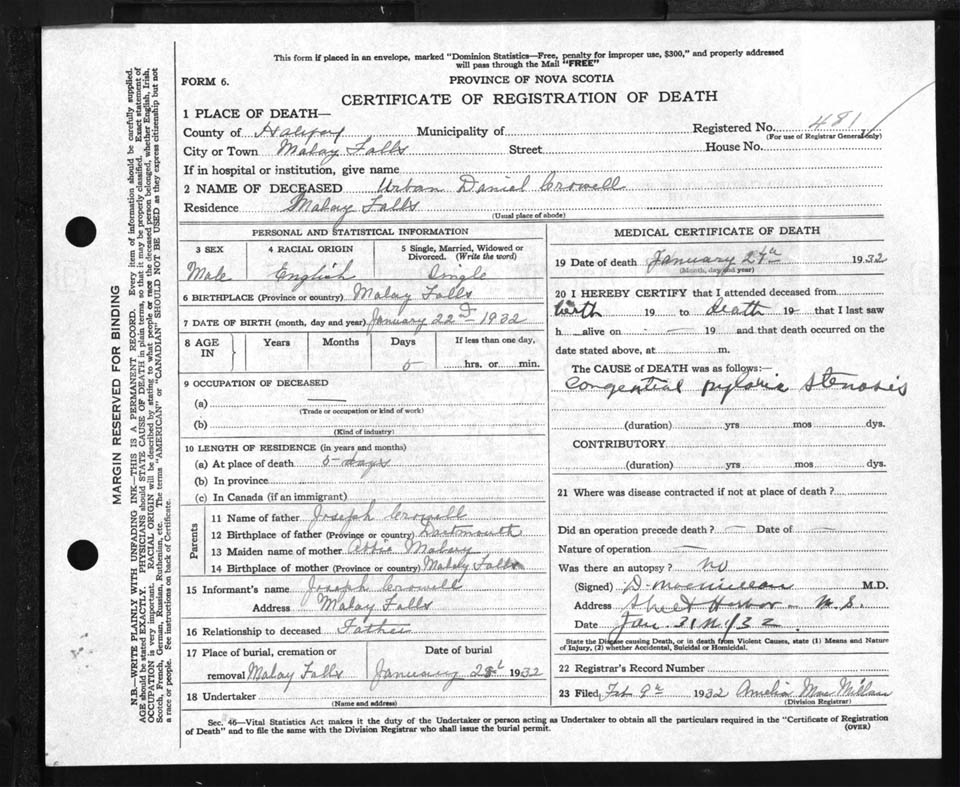 This form if placed in an envelope, marked "Dominion Statistics—Free, penalty for improper use, $300," and properly addressed
will pass through the Mail "FREE"
FORM 6.
PROVINCE OF NOVA SCOTIA
CERTIFICATE OF REGISTRATION OF DEATH
1 PLACE OF DEATH—
County of Halifax Municipality of Registered No. 481
(For use of Registrar General only)
City or Town Malay Falls Street House No.
If in hospital or institution, give name
2 NAME OF DECEASED Urban Daniel Crowell
Residence Malay Falls
(Usual place of abode)
PERSONAL AND STATISTICAL INFORMATION
3 SEX 4 RACIAL ORIGIN 5 Single, Married, Widowed or
Divorced. (Write the word)
Male English Single
6 BIRTHPLACE (Province or country) Malay Falls
7 DATE OF BIRTH (month, day and year) January 22 1932
8 AGE IN Years Months Days If less than one day,
5 hrs. or min.
9 OCCUPATION OF DECEASED
(a) —
(Trade or occupation or kind of work)
(b)
(Kind of industry)
10 LENGTH OF RESIDENCE (in years and months)
(a) At place of death 5 days
(b) In province
(c) In Canada (if an immigrant)
Parents
11 Name of father Joseph Crowell
12 Birthplace of father (Province or country) Dartmouth
13 Maiden name of mother
14 Birthplace of mother (Province or country) Malay Falls
15 Informant's name Joseph Crowell
Address Malay Falls
16 Relationship to deceased Father
17 Place of burial, cremation or Date of burial
removal Malay Falls January 1932
18 Undertaker
(Name and address)
MEDICAL CERTIFICATE OF DEATH
19 Date of death January 1932
(Month, day and year)
20 I HEREBY CERTIFY that I attended deceased from
birth 19 to death 19 that I last saw
h alive on — 19 and that death occurred on the
date stated above, at m.
The CAUSE of DEATH was as follows:—
Congential pyloric stenosis
(duration) yrs mos dys.
CONTRIBUTORY
(duration) yrs mos dys.
21 Where was disease contracted if not at place of death?
Did an operation precede death? — Date of —
Nature of operation —
Was there an autopsy? No
(Signed) D. MacMillan M.D.
Address Harbor N.S.
Date Jan. 1932
State the Disease causing Death, or in death from Violent Causes, state (1) Means and Nature
of Injury, (2) whether Accidental, Suicidal or Homicidal.
22 Registrar's Record Number
23 Filed Feb 9th 1932 Amelia MacMillan
(Division Registrar)
Sec. 46—Vital Statistics Act makes it the duty of the Undertaker or person acting as Undertaker to obtain all the particulars required in the "Certificate of Registration
of Death" and to file the same with the Division Registrar who shall issue the burial permit.
(OVER)
MARGIN RESERVED FOR BINDING
N.B.—WRITE PLAINLY WITH UNFADING INK—THIS IS A PERMANENT RECORD. Every item of information should be carefully supplied.
AGE should be stated EXACTLY. PHYSICIANS should STATE CAUSE OF DEATH in plain terms, so that it may be properly classified. Exact statement of
OCCUPATION is very important. RACIAL ORIGIN will be described by stating to what people or race the deceased person belonged, whether English, Irish,
Scotch, French, German, Russian, Ruthenian, etc. The terms "AMERICAN" or "CANADIAN" SHOULD NOT BE USED as they express citizenship but not
a race or people. See instructions on back of Certificate.